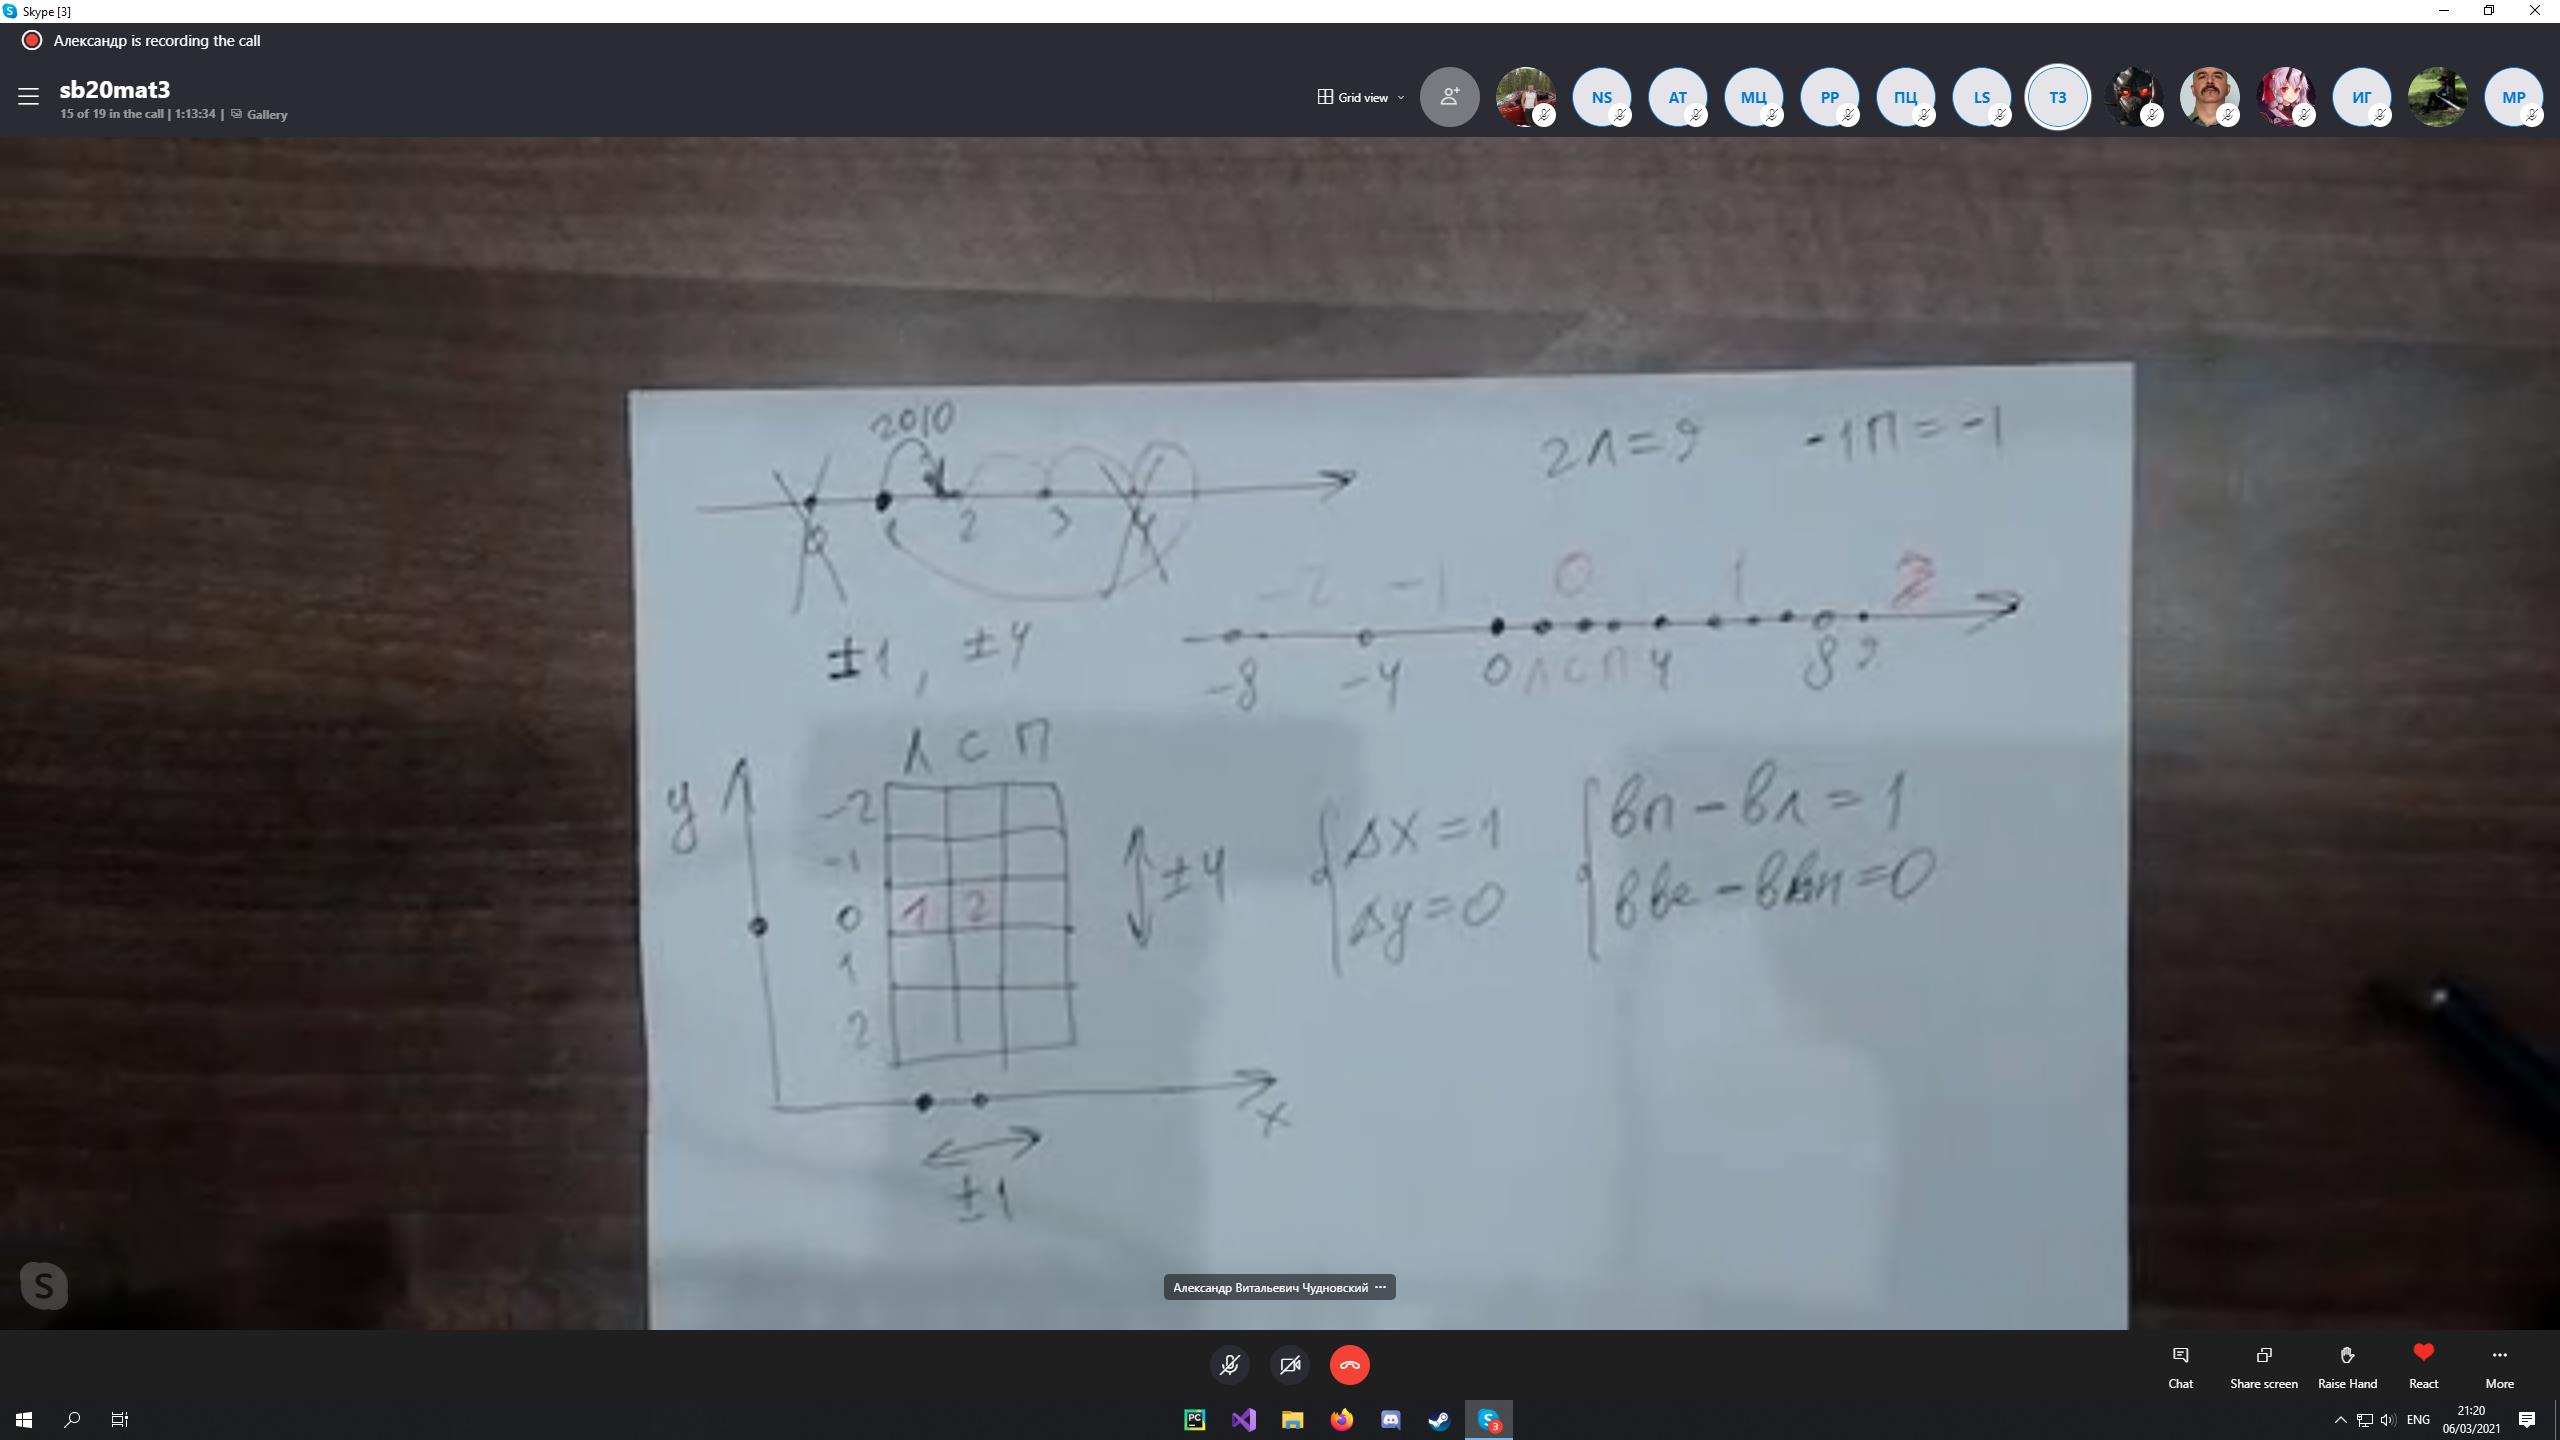 Skype [3]
Александр is recording the call
sb20mat3
15 of 19 in the call | 1:13:34 | Gallery
Grid view
NS
AT
МЦ
PP
ПЦ
LS
ТЗ
ИГ
MP
2010
2Л=9
-1П=-1
0 1 2 3 4
-2 -1 0 1 2
±1, ±4
-8 -4 0 Л С П 4 8 9
Л С П
y
-2
-1
0 1 2
1
2
±4
Δx=1
Δy=0
вп-вл=1
x
±1
Александр Витальевич Чудновский
S
Chat
Share screen
Raise Hand
React
More
PC
S 3
ENG
21:20
06/03/2021